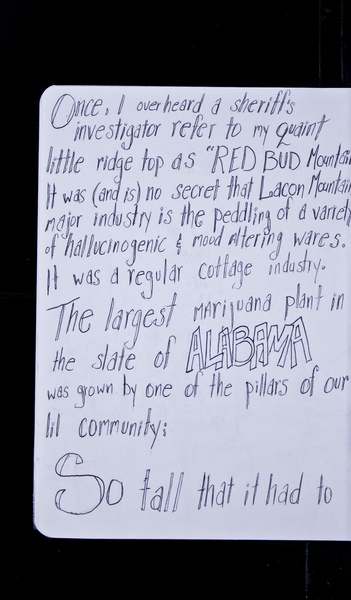 Once, I overheard a sheriff's
investigator refer to my quaint
little ridge top as "RED BUD Mountain
It was (and is) no secret that Lacon Mountain
major industry is the peddling of a variety
of hallucinogenic & mood altering wares.
It was a regular cottage industry.
The largest marijuana plant in
the state of ALABAMA
was grown by one of the pillars of our
lil community;
So tall that it had to